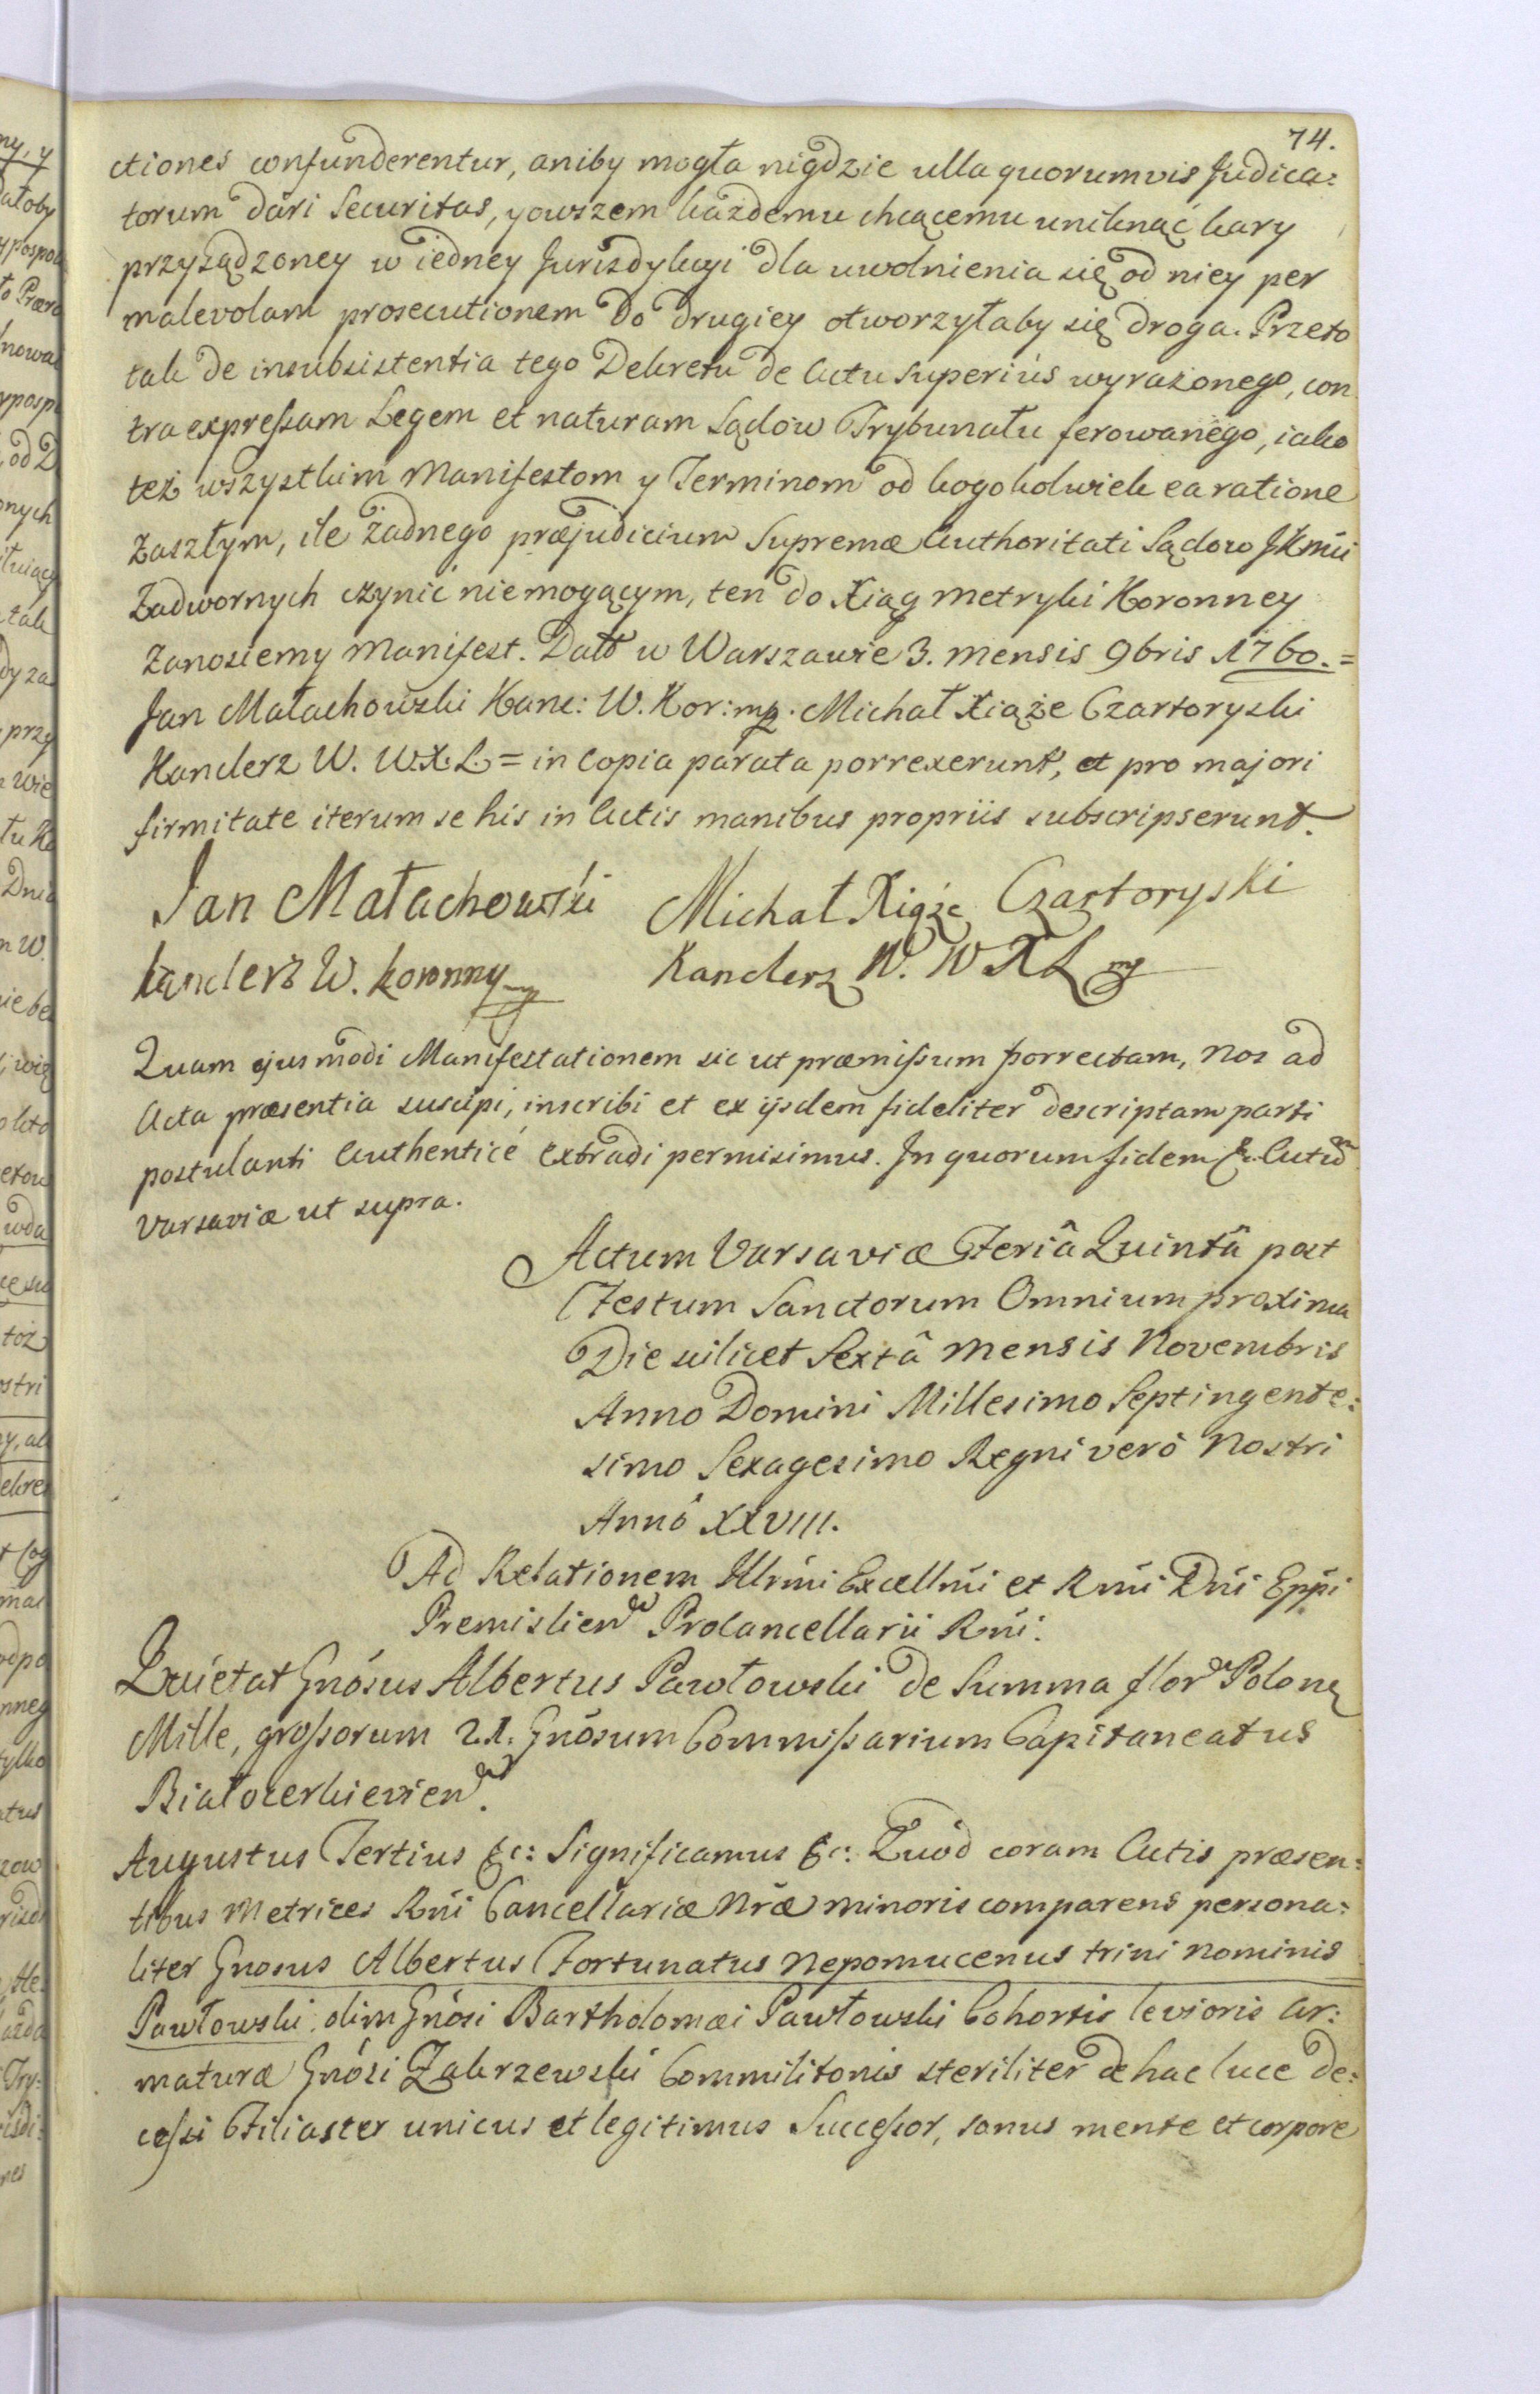 74.
ctiones confunderentur, aniby mogła nigdzie ulla quorumvis Judica:
torum dari Securitas, y owszem każdemu chcącemu uniknąć kary
przysądzoney w iedney Jurisdykcyi dla uwolnienia się od niey per
malevolam prosecutionem do drugiey otworzyłaby się droga. Przeto
tak de insubsistentia tego Dekretu de Actu superiùs wyrażonego, con
tra expressam Legem et naturam Sądow Trybunału ferowanego, iako
też wszystkim Manifestom y Terminom od kogokolwiek ea ratione
zaszłym, ile żadnego præjudicium Supremæ Authoritati Sądow JKMci
Zadwornych czynić niemogącym, ten do Xiąg Metryki Koronney
zanosiemy Manifest. Datt w Warszawie 3. mensis 9bris 1760. =
Jan Małachowski Kanc: W. Kor: mp. Michał Xiąże Czartoryski
Kanclerz W. W.X.L. = in Copia parata porrexerunt, et pro majori
firmitate iterum se his in Actis manibus propriis subscripserunt.
Jan Małachowski Michał Xiąże Czartoryski
kanclerz W. koronny mp Kanclerz W. W X L mp
Quam ejusmodi Manifestationem sic ut præmissum porrectam, Nos ad
Acta præsentia suscipi, inscribi et ex ijsdem fideliter descriptam parti
postulanti Authenticè extradi permisimus. In quorum fidem &c. Actum
Varsaviæ ut supra.
Actum Varsaviæ Feriâ Quintâ post
Festum Sanctorum Omnium proxima
Die scilicet Sextâ Mensis Novembris
Anno Domini Millesimo Septingente:
simo Sexagesimo Regni verò Nostri
Annô XXVIII.
Ad Relationem Illrmi Excellmi et Rmi Dni Eppi
Premislien Procancellarii Rni.
Quietat Gnosus Albertus Pawłowski de Summa flor Polon
Mille, grossorum 21. Gnosum Commissarium Capitaneatus
Białocerkievien.
Augustus Tertius &c: Significamus &c: Quod coram Actis præsen:
tibus Metrices Rni Cancellariæ Nræ minoris comparens persona:
liter Gnosus Albertus Fortunatus Nepomucenus trini nominis
Pawłowski, olim Gnosi Bartholomæi Pawłowski Cohortis levioris Ar:
maturæ Gnosi Zakrzewski Commilitonis steriliter de hac luce de:
cessi Filiaster unicus et legitimus Successor, sanus mente et corpore